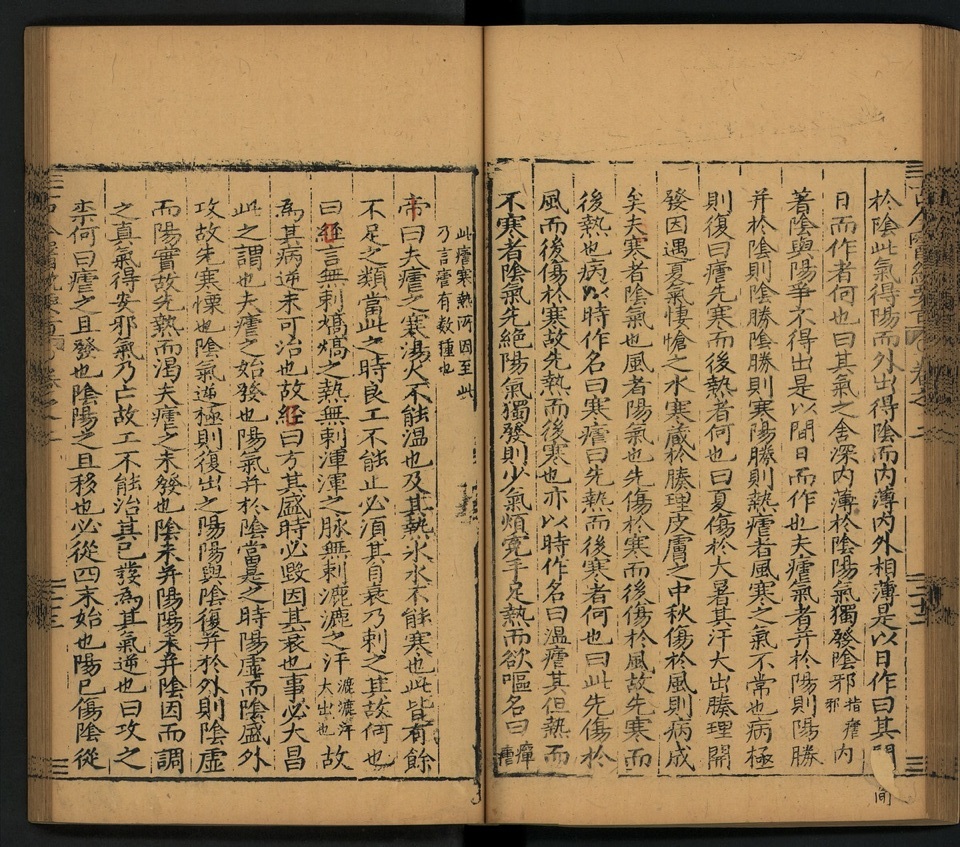 於陰此氣得陽而外出得陰而内薄内外相薄是以日作曰其間
日而作者何也曰其氣之舍深内薄於陰陽氣獨發陰邪指瘧邪内
著陰與陽爭不得出是以間日而作也夫瘧氣者并於陽則陽勝
并於陰則陰勝陰勝則寒陽勝則熱瘧者風寒之氣不常也病極
則復曰瘧先寒而後熱者何也曰夏傷於大暑其汗大出腠理開
發因遇夏氣悽愴之水寒藏於腠理皮膚之中秋傷於風則病成
矣夫寒者陰氣也風者陽氣也先傷於寒而後傷於風故先寒而
後熱也病以時作名曰寒瘧曰先熱而後寒者何也曰此先傷於
風而後傷於寒故先熱而後寒也亦以時作名曰温瘧其但熱而
不寒者陰氣先絶陽氣獨發則少氣煩寃手足熱而欲嘔名曰癉瘧
此瘧寒熱所因至此
乃言瘧有数種也
帝曰夫瘧之寒湯火不能温也及其熱氷水不能寒也此皆有餘
不足之類當此之時良工不能止必須其自衰乃刺之其故何也
曰經言無刺熇熇之熱無刺渾渾之脉無刺漉漉之汗漉漉汗大出也故
為其病逆未可治也故經曰方其盛時必毀因其衰也事必大昌
此之謂也夫瘧之始發也陽氣并於陰當是之時陽虚而陰盛外
攻故先寒慄也陰氣逆極則復出之陽陽與陰復并於外則陰虚
而陽實故先熱而渴夫瘧之未發也陰未并陽陽未并陰因而調
之真氣得安邪氣乃亡故工不能治其已發為其氣逆也曰攻之
柰何曰瘧之且發也陰陽之且移也必從四末始也陽已傷陰從
間